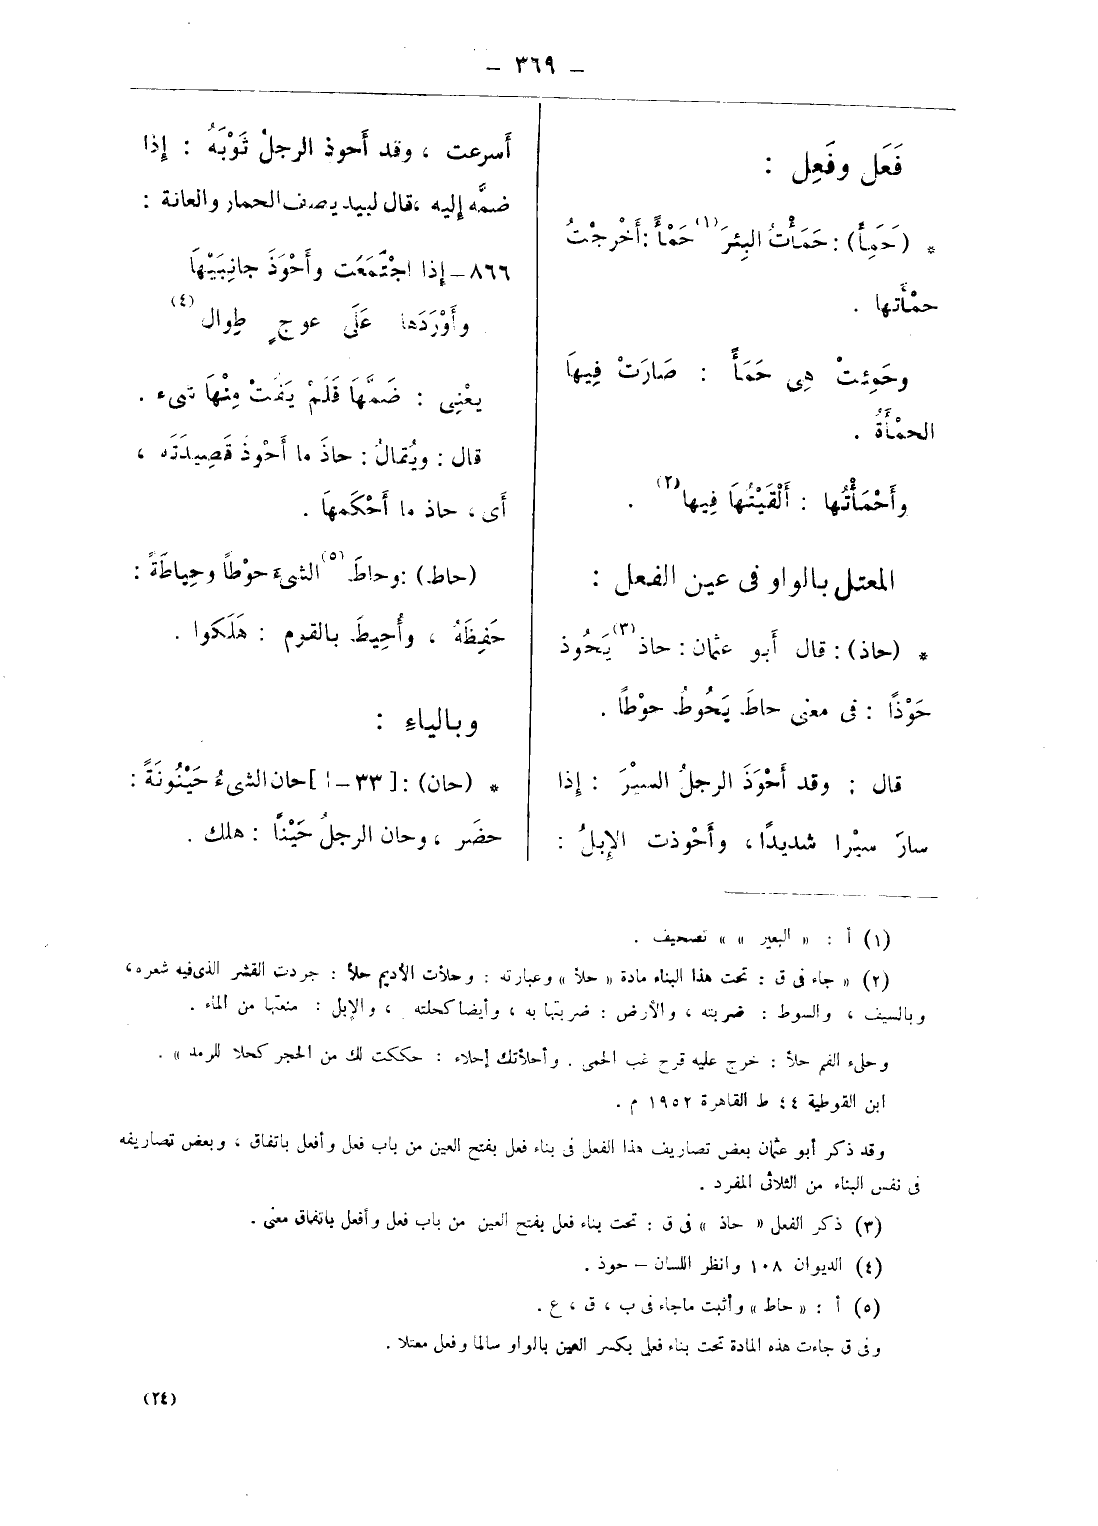 – ٣٦٩ –
فَعَل وفَعِل :
* (حَمَِأ) : حَمَأْتُ البِئرَ(١) حَمْأً : أَخْرجْتُ
حمْأَتها .
وحَمِئتْ هِى حَمَأً : صَارَتْ فِيهَا
الحمْأَةُ .
وأَحْمَأْتُها : أَلْقَيْتُهَا فِيها(٢) .
المعتل بالواو فى عين الفعل :
* (حاذ) : قال أبو عثمان : حاذ(٣) يَحُوذ
حَوْذًا : فى معنى حاطَ يَحُوطُ حوْطًا .
قال : وقد أَحْوَذَ الرجلُ السيْرَ : إذا
سارَ سيْرا شديدًا ، وأَحْوذت الإبلُ :
أَسرعت ، وقد أَحوذ الرجلُ ثَوْبَهُ : إِذا
ضمَّه إليه ، قال لبيد يصف الحمار والعانة :
٨٦٦ – إذا اجْتَمَعَت وأَحْوَذَ جانِبَيْهَا
وأَوْرَدَها عَلَى عوجٍ طِوال(٤)
يعْنِى : ضَمَّهَا فَلَمْ يَفُتْ مِنْهَا شىء .
قال : ويُقالُ : حاذَ ما أَحْوذَ قَصِيدَتَه ،
أَى ، حاذ ما أَحْكَمهَا .
(حاط) : وحاطَ(٥) الشىءَ حوْطًا وحِياطَةً :
حَفِظَهُ ، وأُحِيطَ بالقوم : هَلَكوا .
وبالياءِ :
* (حان) : [ ٣٣ – ا ] حان الشىءُ حَيْنُونَةً :
حضَر ، وحان الرجلُ حَيْنًا : هلك .
(١) أ : « البعير » » تصحيف .
(٢) « جاء فى ق : تحت هذا البناء مادة « حلأ » وعبارته : وحلأت الأديم حلأ : جردت القشر الذى فيه شعره ،
وبالسيف ، والسوط : ضربته ، والأرض : ضربتها به ، وأيضا كحلته ، والإبل : منعتها من الماء .
وحلىء الفم حلأ : خرج عليه قرح غب الحمى . وأحلأتك إحلاء : حككت لك من الحجر كحلا للرمد » .
ابن القوطية ٤٤ ط القاهرة ١٩٥٢ م .
وقد ذكر أبو عثمان بعض تصاريف هذا الفعل فى بناء فعل بفتح العين من باب فعل وأفعل باتفاق ، وبعض تصاريفه
فى نفس البناء من الثلاثى المفرد .
(٣) ذكر الفعل « حاذ » فى ق : تحت بناء فعل بفتح العين من باب فعل وأفعل باتفاق معنى .
(٤) الديوان ١٠٨ وانظر اللسان – حوذ .
(٥) أ : « حاط » وأثبت ماجاء فى ب ، ق ، ع .
وفى ق جاءت هذه المادة تحت بناء فعل بكسر العين بالواو سالما وفعل معتلا .
(٢٤)